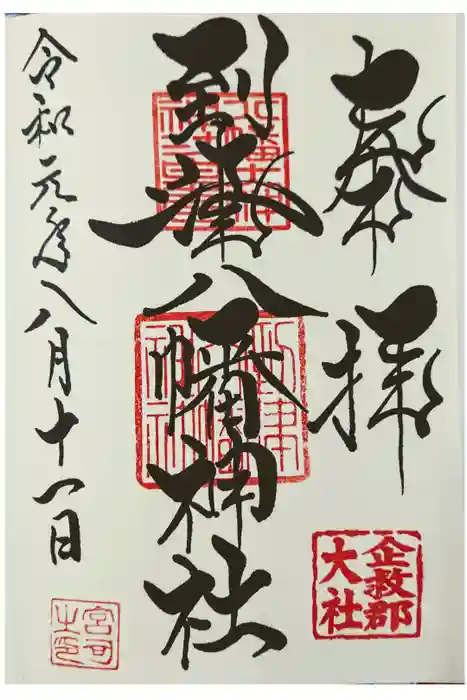 奉拝
企救郡
大社
到津八幡神社
令和元年八月十一日